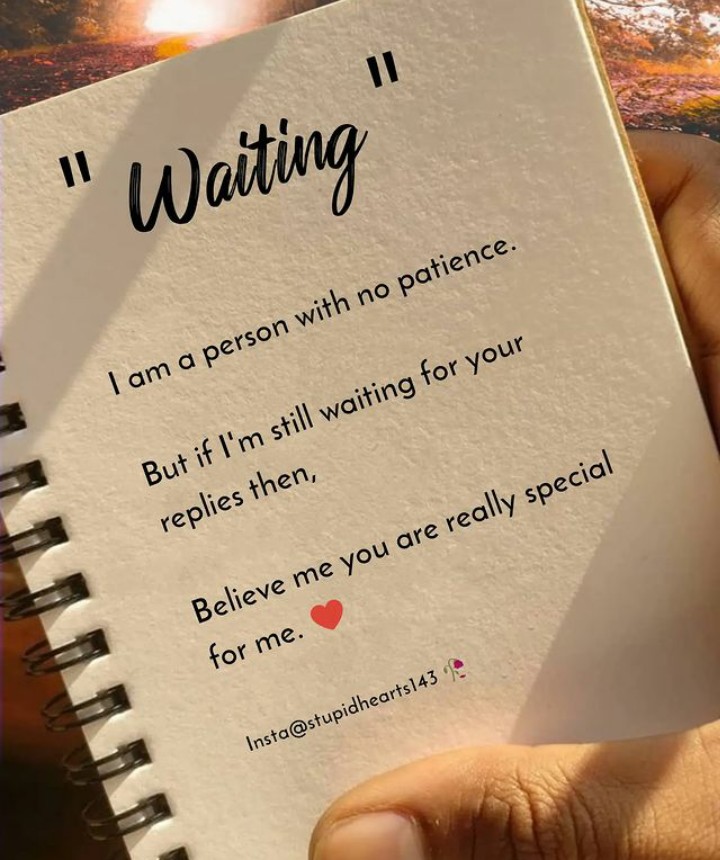 " Waiting "
I am a person with no patience.
But if I'm still waiting for your
replies then,
Believe me you are really special
for me. ❤️
Insta@stupidhearts143 🥀